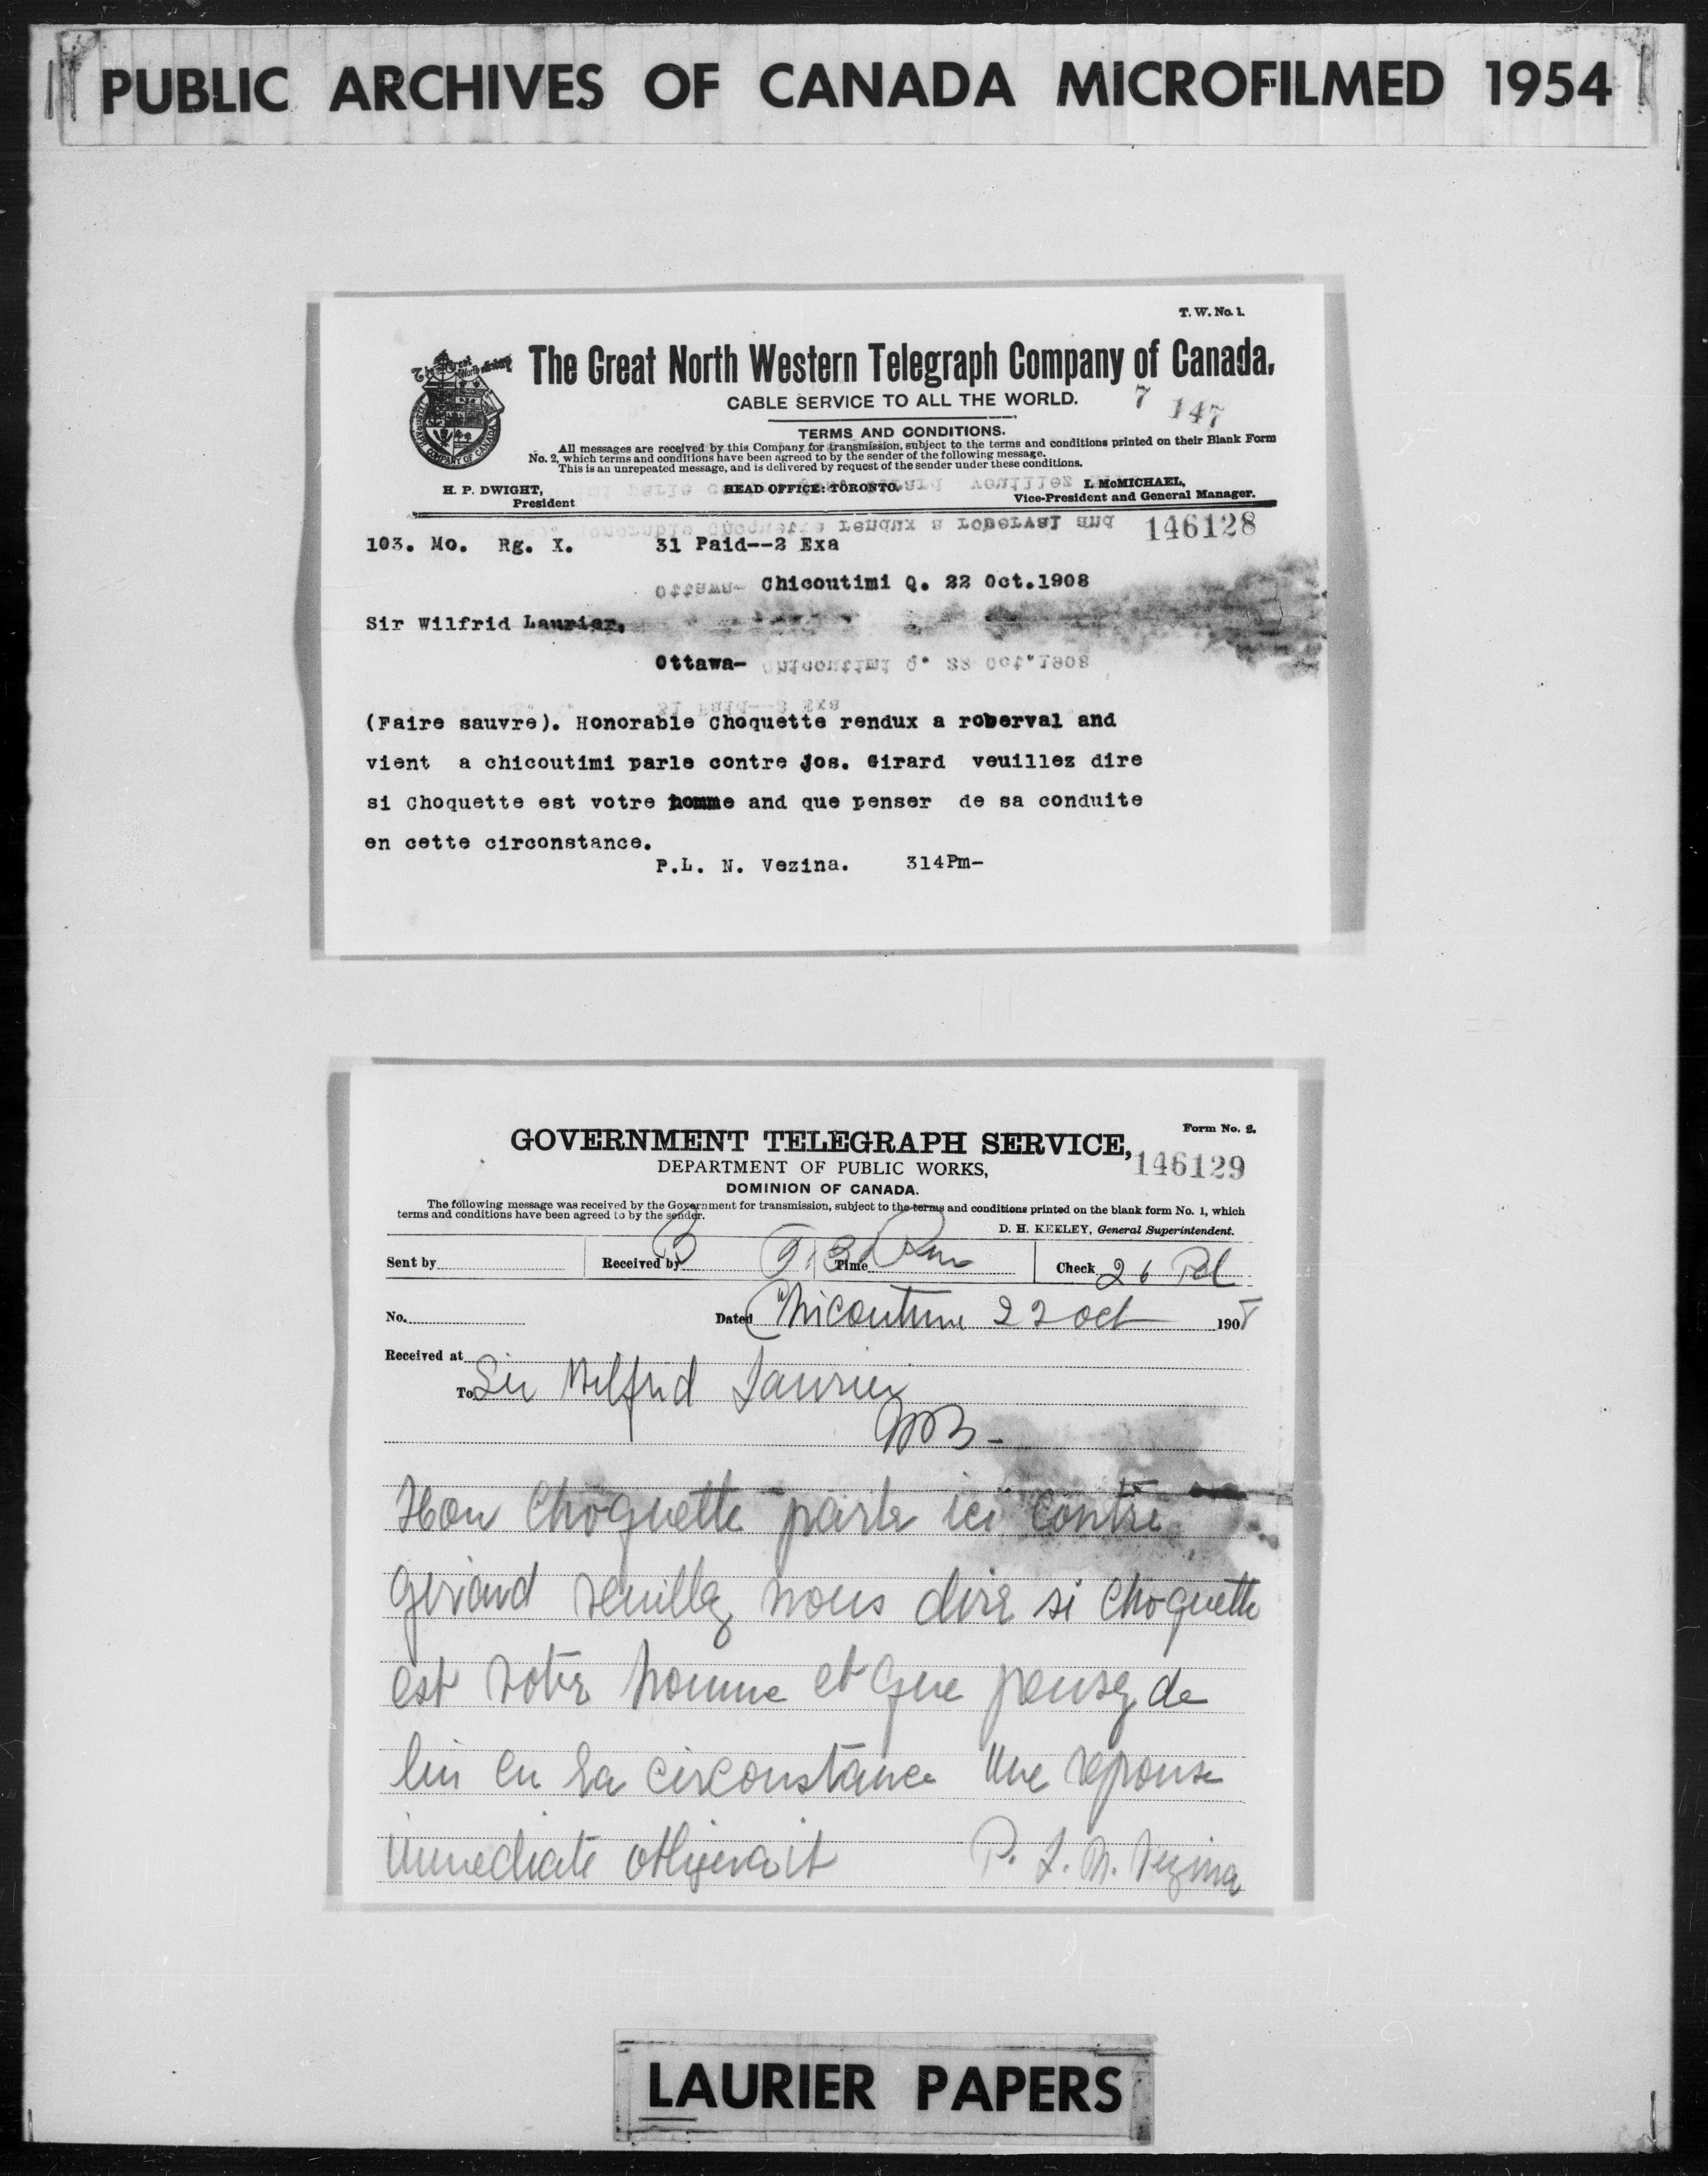 PUBLIC ARCHIVES OF CANADA MICROFILMED 1954
T. W. No. 1.
The Great North Western Telegraph Company of Canada.
CABLE SERVICE TO ALL THE WORLD.
7 147
TERMS AND CONDITIONS.
All messages are received by this Company for transmission, subject to the terms and conditions printed on their Blank Form
No. 2, which terms and conditions have been agreed to by the sender of the following message.
This is an unrepeated message, and is delivered by request of the sender under these conditions.
H. P. DWIGHT, HEAD OFFICE: TORONTO. I. McMICHAEL,
President Vice-President and General Manager.
146128
103. Mo. Rg. X. 31 Paid--2 Exa
Chicoutimi Q. 22 Oct.1908
Sir Wilfrid Laurier,
Ottawa-
(Faire sauvre). Honorable Choquette rendux a roberval and
vient a chicoutimi parle contre Jos. Girard veuillez dire
si Choquette est votre homme and que penser de sa conduite
en cette circonstance.
P.L. N. Vezina. 314Pm-
Form No. 2.
GOVERNMENT TELEGRAPH SERVICE,
146129
DEPARTMENT OF PUBLIC WORKS,
DOMINION OF CANADA.
The following message was received by the Government for transmission, subject to the terms and conditions printed on the blank form No. 1, which
terms and conditions have been agreed to by the sender.
D. H. KEELEY, General Superintendent.
Sent by Received by B Time Check 26 Pd
No. Dated Chicoutimi 22 oct 1908
Received at
To Sir Wilfrid Laurier
Hon Choquette parle ici contre
Gerard veuillez nous dire si Choquette
est votre homme et que pensez de
lui en sa circonstance Une reponse
immediate obligerait P. L. N. Vezina
LAURIER PAPERS